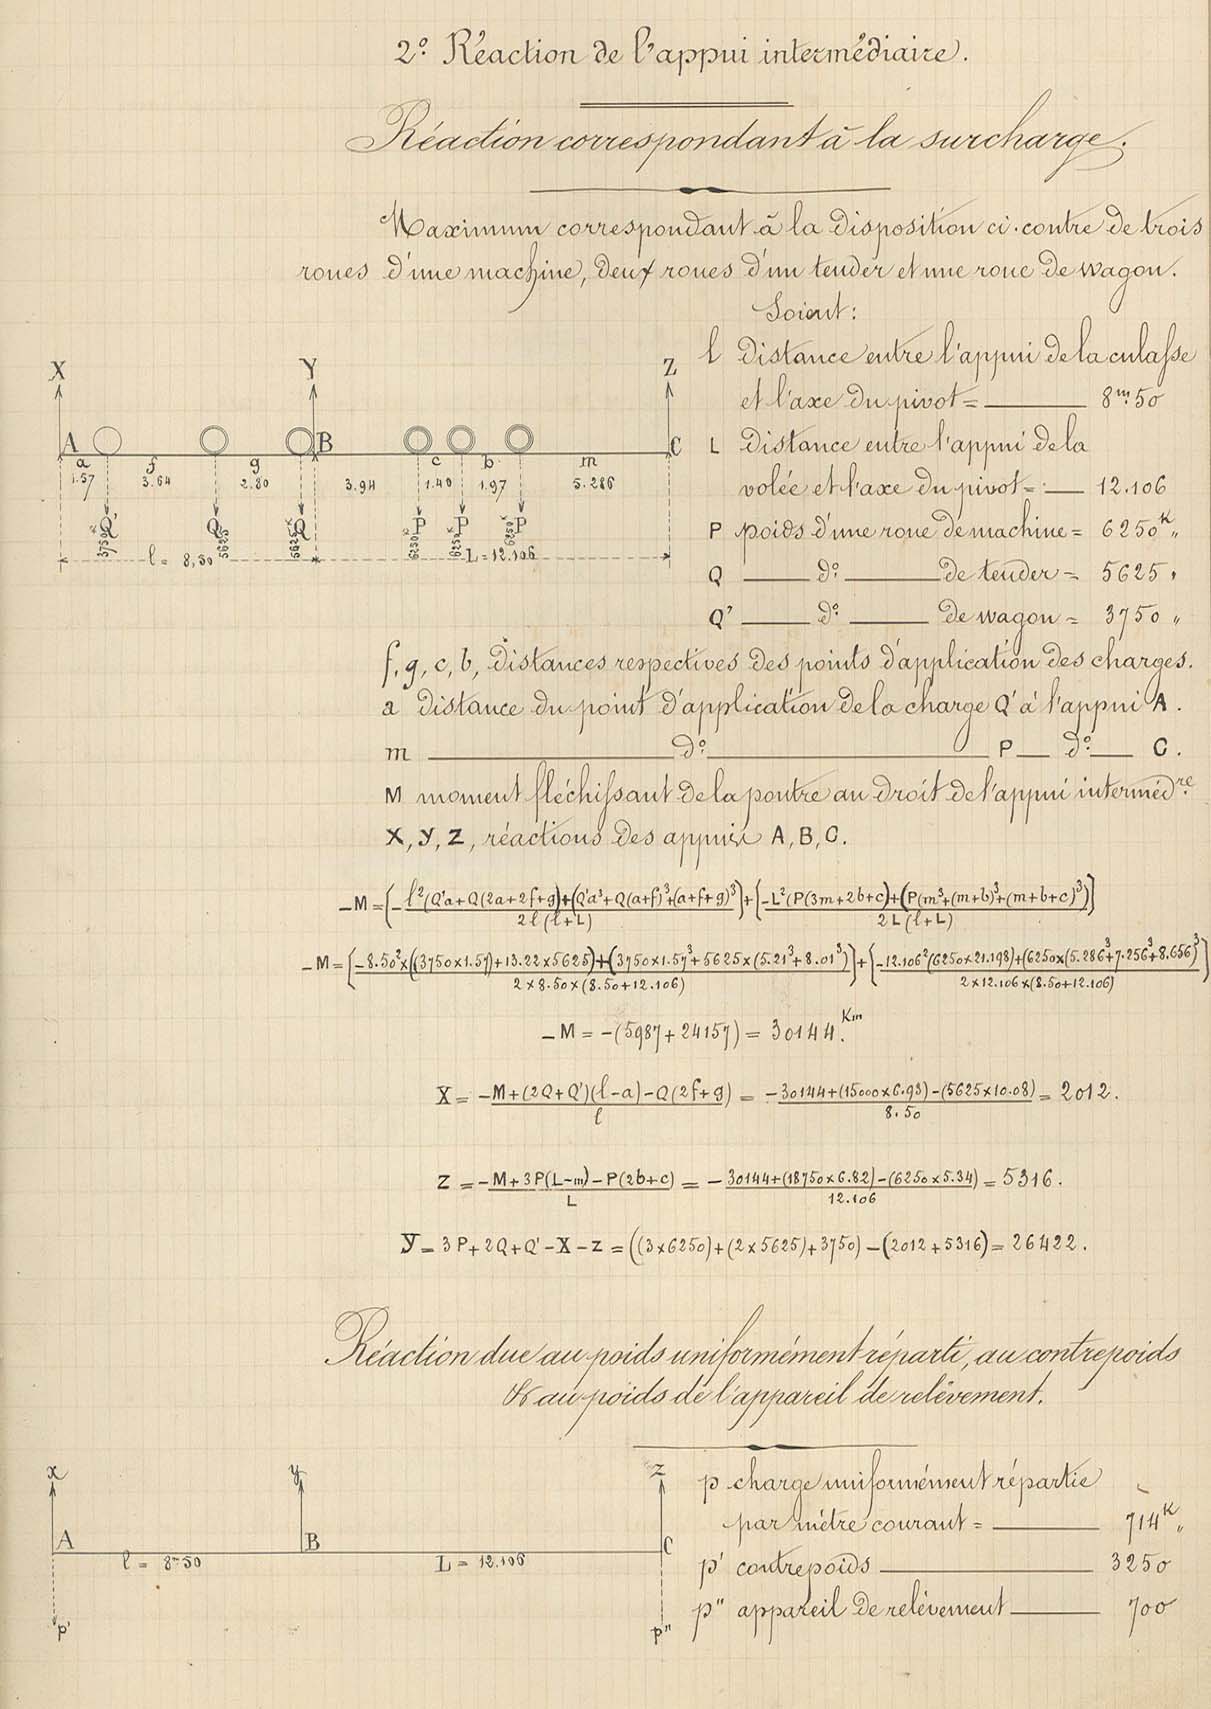 2º Réaction de l'appui intermédiaire.
Réaction correspondant à la surcharge.
Maximum correspondant à la disposition ci-contre de trois
roues d'une machine, deux roues d'un tender et une roue de wagon.
Soient:
l distance entre l'appui de la culasse
et l'axe du pivot = 8m.50
L distance entre l'appui de la
volée et l'axe du pivot = 12.106
P poids d'une roue de machine = 6250K „
Q dº de tender = 5625 „
Q' dº de wagon = 3750 „
X Y Z
A B C
a f g c b m
1.57 3.64 2.80 3.94 1.40 1.97 5.286
Q' Q Q P P P
3750K 5625 5625K 6250K 6250K 6250K
l = 8,50 L = 12.106
f, g, c, b, distances respectives des points d'application des charges.
a distance du point d'application de la charge Q' à l'appui A.
m dº P dº C.
M moment fléchissant de la poutre au droit de l'appui interméd.re
X, Y, Z, réactions des appuis A, B, C.
-M = (-l²(Q'a+Q(2a+2f+g)+(Q'a³+Q(a+f)³+(a+f+g)³)/2l(l+L)) + (-L²(P(3m+2b+c)+(P(m³+(m+b)³+(m+b+c)³)/2L(l+L))
-M = (-8.50²×((3750×1.57)+13.22×5625)+(3750×1.57³+5625×(5.21³+8.01³)/2×8.50×(8.50+12.106)) + (-12.106²(6250×21.198)+(6250×(5.286³+7.256³+8.656)³/2×12.106×(8.50+12.106))
-M = -(5987+24157) = 30144.Km
X = -M+(2Q+Q')(l-a)-Q(2f+g)/l = -30144+(15000×6.93)-(5625×10.08)/8.50 = 2012.
Z = -M+3P(L-m)-P(2b+c)/L = -30144+(18750×6.82)-(6250×5.34)/12.106 = 5316.
Y = 3P+2Q+Q'-X-Z = ((3×6250)+(2×5625)+3750)-(2012+5316) = 26422.
Réaction due au poids uniformément réparti, au contrepoids
& au poids de l'appareil de relèvement.
x y z
A B C
l = 8m50 L = 12.106
p' p"
p charge uniformément répartie
par mètre courant = 714K „
p' contrepoids 3250
p" appareil de relèvement 700